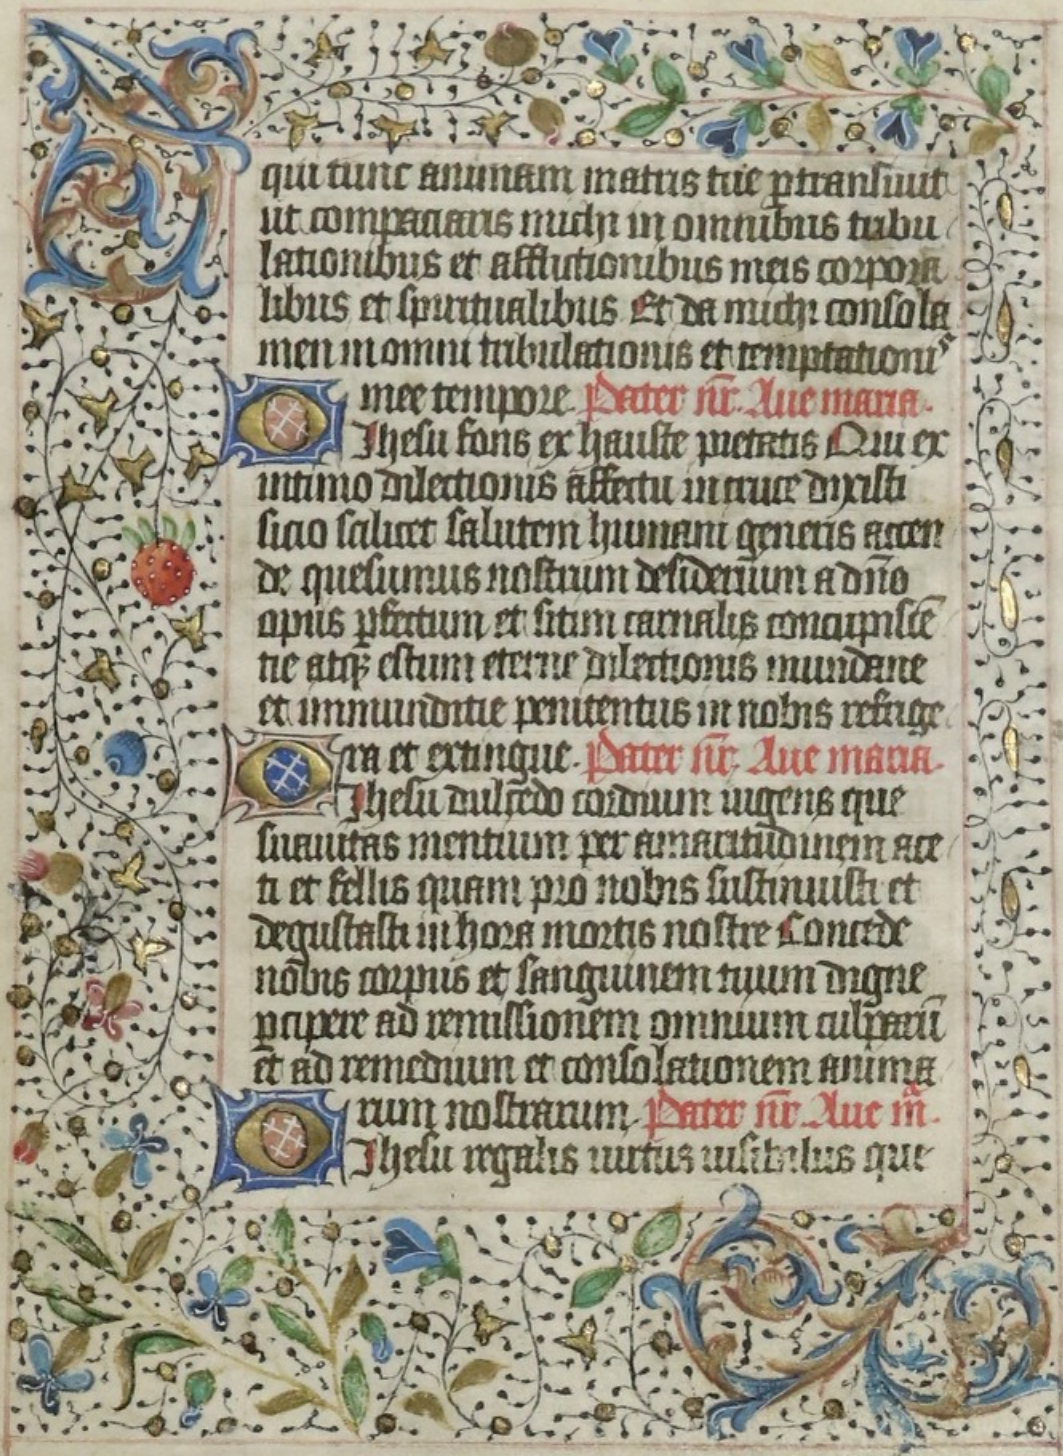 qui tunc animam matris tue ꝑtransiuit
ut compaciaris michi in omnibus tribu
lationibus et afflictionibus meis corpora
libus et spiritualibus Et da michi consola
men in omni tribulationis et temptationis
mee tempore. Pater nr̄. Aue maria.
O Ihesu fons ex hauste pietatis Qui ex
intimo dilectionis affectu in cruce dixisti
sicio scilicet salutem humani generis accen
de quesumus nostrum desiderium ad om̄e
opus ꝑfectum et sitim carnalis concupiscē
tie atqꝫ estum eterne dilectionis mundane
et immunditie penitentus in nobis refrige
ra et extingue. Pater nr̄. Aue maria.
O Ihesu dulcedo cordium uigens que
suauitas mentium per amaritudinem ace
ti et fellis quam pro nobis sustinuisti et
degustasti in hora mortis nostre Concede
nobis corpus et sanguinem tuum digne
ꝑcipere ad remissionem omnium culparū
et ad remedium et consolationem anima
rum nostrarum. Pater nr̄. Aue m̄a.
O Ihesu regalis uirtus uisibilus que